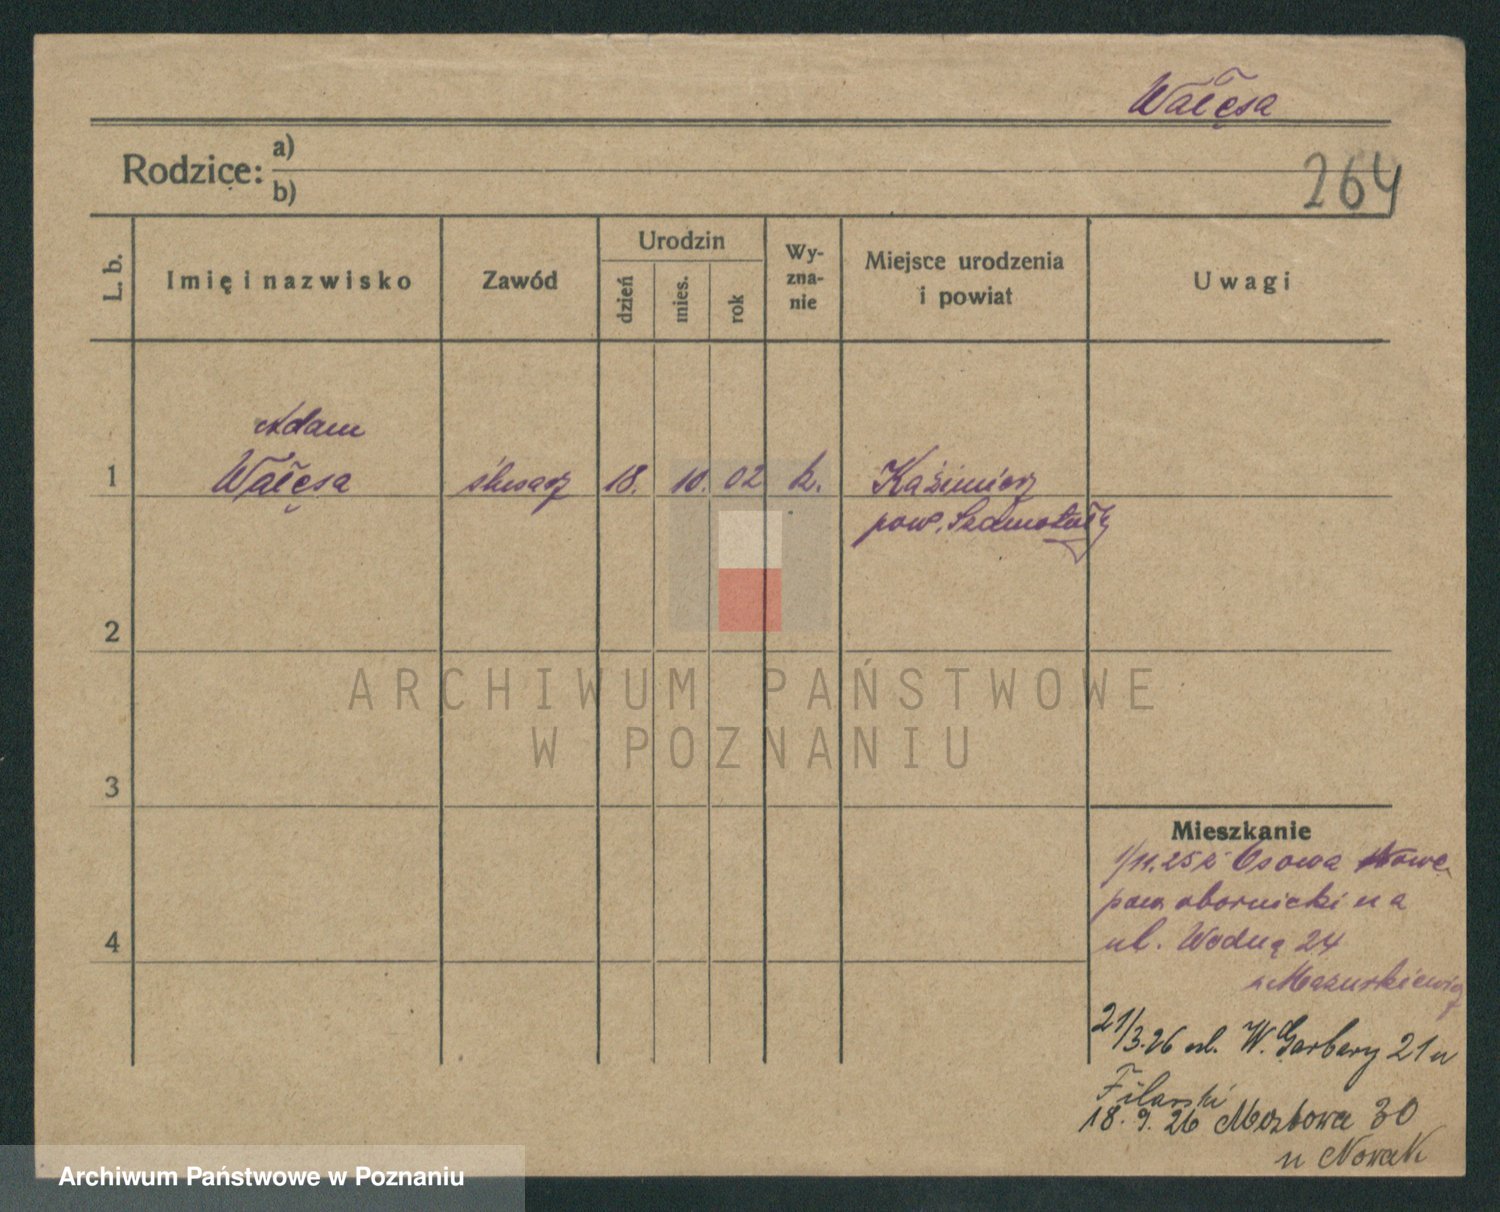 Wałęsa
Rodzice: a)
b)
264
L. b.
Imię i nazwisko
Zawód
Urodzin
dzień
mies.
rok
Wy-
zna-
nie
Miejsce urodzenia
i powiat
Uwagi
Adam
1 Wałęsa ślusarz 18. 10. 02 k. Kaźmierz
pow. Szamotuły
2
ARCHIWUM PAŃSTWOWE
W POZNANIU
3
Mieszkanie
1/11.25 z Osowa Nowe
pow obornicki na
4
ul. Wodną 24
u Mazurkiewicz
21/3.26 ul. W. Garbary 21 u
Filarski
18. 9. 26 Mostowa 30
u Nowak
Archiwum Państwowe w Poznaniu